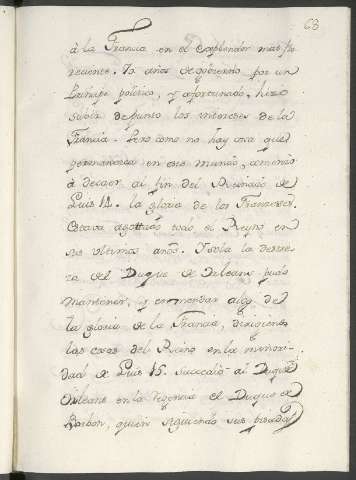 63
á la Francia en el esplendor mas flo
reciente. 70 años de gobierno por un
Principe politico, y afortunado, hizo
subir de punto los intereses de la
Francia. Pero como no hay cosa que
permanezca en este mundo, comenzo
á decaer al fin del Reinado de
Luis 14. la gloria de los Franceses.
Estava agottado todo el Reyno en
sus ultimos años. Y sola la destre
za del Duque de Orleans pudo
mantener, y enmendar algo de
la gloria de la Francia, dirigiendo
las cosas del Reino en la minori
dad de Luis 15. Succedió al Duque
Orleans en la regencia el Duque de
Borbon, quien siguiendo sus pisadas